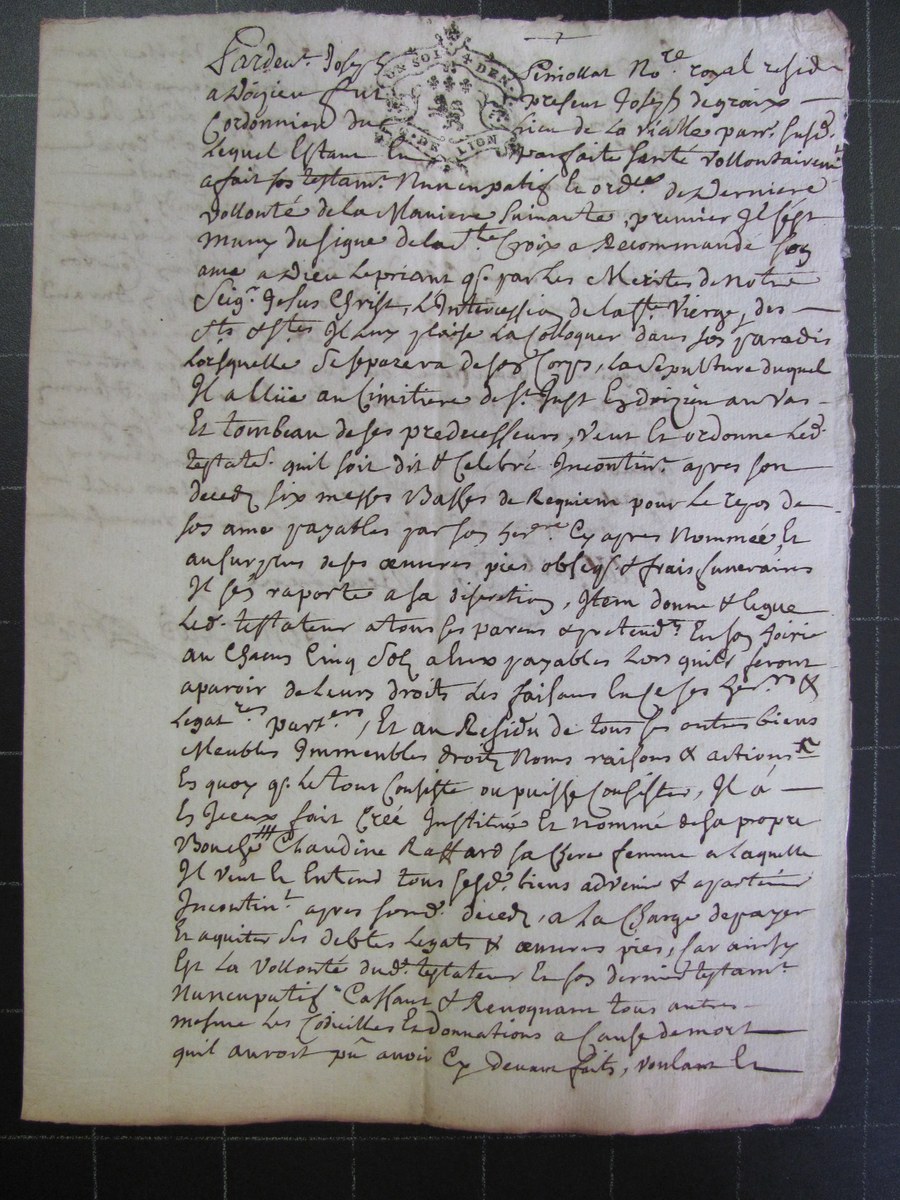 Pardevt. Joseph Pimollat Nore. royal resid
a Doizieu fut present Joseph degraix
Cordonnier du lieu de la Vialle parr. susd.
UN SOL 4 DEN.
G. DE LION
Lequel Estant En parfaite santé vollontairemt
a fait son testamt. Nuncupatif et ordce de Derniere
Vollonté de la Maniere suivante, premier Il s'est
muny du signe de la Ste Croix a Recommandé son
ame a Dieu le priant q. par les Merites de notre
Seigr. Jesus Christ, L'Intercession de la Ste. Vierge, des
Sts. & Stes Il Luy plaise La Colloquer dans son paradis
Lorsquelle se separera de son Corps, la sepulture duquel
Il a Elüe au Cimitiere de St. Just En doizieu au Vas
Et tombeau de ses predecesseurs, Veut Et ordonne Led.
testatr. quil soit dit & Celebré Incontint. apres son
deced six messes Basses de Requiem pour Le repos de
son ame payables par son herre. Cy apres Nommée, Et
au surplus de ses œuvres pies obseqs & frais funeraires
Il s'en raporte a sa discretion, Item donne & legue
Led. testateur a tous ses parens & pretends En son hoirie
au Chacun Cinq sols a Eux payables Lors quils feront
aparoir de Leurs droits les faisans En ce ses herrs &
Legatres parters, Et au Residu de tous ses autres biens
Meubles Immeubles droits Noms raisons & actions
Es quoy q. Le tout Consiste ou puisse Consister, Il á
Et Iceux fait Créé Institué Et nommé de sa propre
Bouche Claudine Raffard sa Chere femme a Laquelle
Il veut Et Entend tous sesd. biens advenir & apartenir
Incontint. apres sond. deced, a La Charge de payer
Et aquiter ses debtes Legats & œuvres pies, Car ainsy
Est La Vollonté dud. testateur Et son dernier testamt
Nuncupatif Cassant & Revoquant tous autres
mesme Les Codicilles Et donnations a Cause de mort
quil auroit pû avoir Cy devant faits, voulant Et